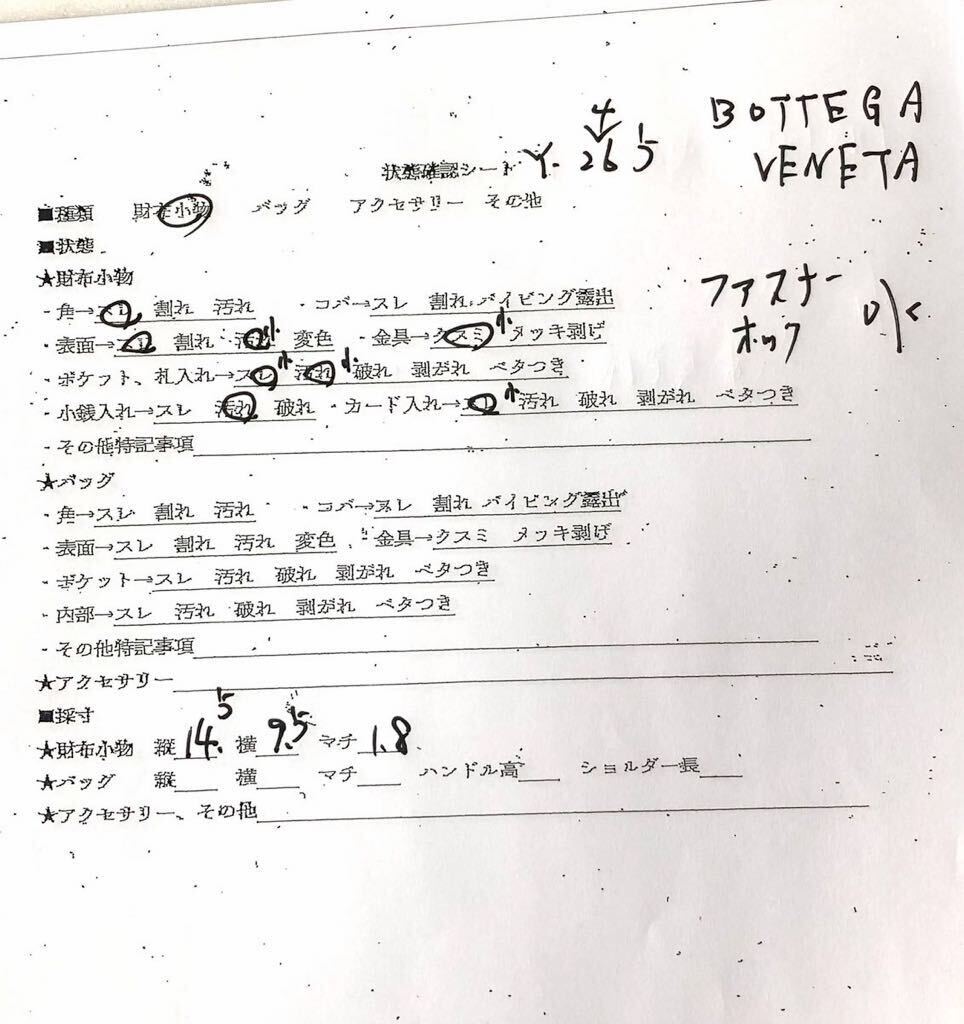 BOTTEGA
VENETA
状態確認シート Y-265
4
■種類 財布小物 バッグ アクセサリー その他
■状態
★財布小物
・角→スレ 割れ 汚れ ・コバ→スレ 割れ パイピング露出
・表面→スレ 割れ 汚れ小 変色 ・金具→クスミ小 メッキ剥げ
・ポケット、札入れ→スレ小 汚れ小 破れ 剥がれ ベタつき
・小銭入れ→スレ 汚れ 破れ ・カード入れ→スレ小 汚れ 破れ 剥がれ ベタつき
・その他特記事項
ファスナー
ホック
★バッグ
・角→スレ 割れ 汚れ ・コバ→スレ 割れ パイピング露出
・表面→スレ 割れ 汚れ 変色 ・金具→クスミ メッキ剥げ
・ポケット→スレ 汚れ 破れ 剥がれ ベタつき
・内部→スレ 汚れ 破れ 剥がれ ベタつき
・その他特記事項
★アクセサリー
■採寸
★財布小物 縦14.5 横9.5 マチ1.8
★バッグ 縦 横 マチ ハンドル高 ショルダー長
★アクセサリー、その他